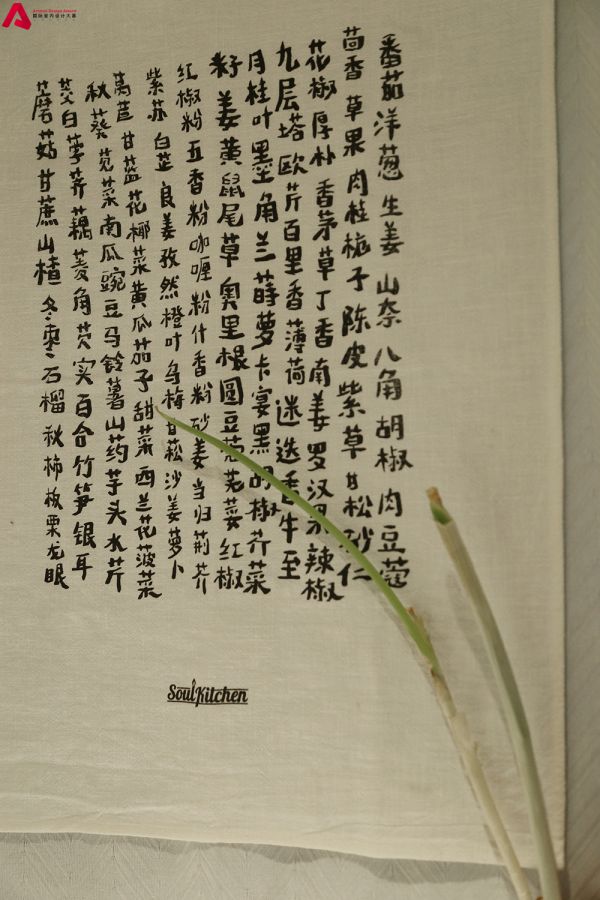 番茄洋葱生姜山奈八角胡椒肉豆蔻
茴香草果肉桂栀子陈皮紫草甘松砂仁
花椒厚朴香茅草丁香南姜罗汉果辣椒
九层塔欧芹百里香薄荷迷迭香牛至
月桂叶墨角兰莳萝卡宴黑胡椒芥菜
籽姜黄鼠尾草奥里根圆豆蔻芫荽红椒
红椒粉五香粉咖喱粉什香粉砂姜当归荆芥
紫苏白芷良姜孜然橙叶乌梅甘菘沙姜萝卜
莴苣甘蓝花椰菜黄瓜茄子甜菜西兰花菠菜
秋葵苋菜南瓜豌豆马铃薯山药芋头水芹
茭白荸荠藕菱角芡实百合竹笋银耳
蘑菇甘蔗山楂冬枣石榴秋柿板栗龙眼
Soul Kitchen
国际室内设计大赛